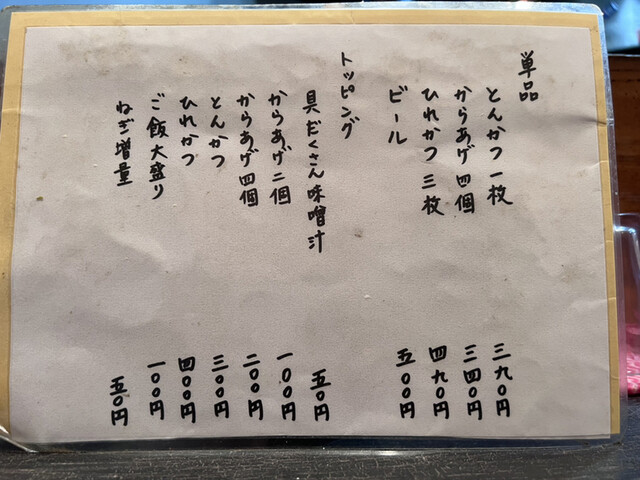 単品
とんかつ 一枚 三九〇円
からあげ 四個 三四〇円
ひれかつ 三枚 四九〇円
ビール 五〇〇円
トッピング
具だくさん味噌汁 五〇円
からあげ 二個 一〇〇円
からあげ 四個 二〇〇円
とんかつ 三〇〇円
ひれかつ 四〇〇円
ご飯大盛り 一〇〇円
ねぎ増量 五〇円